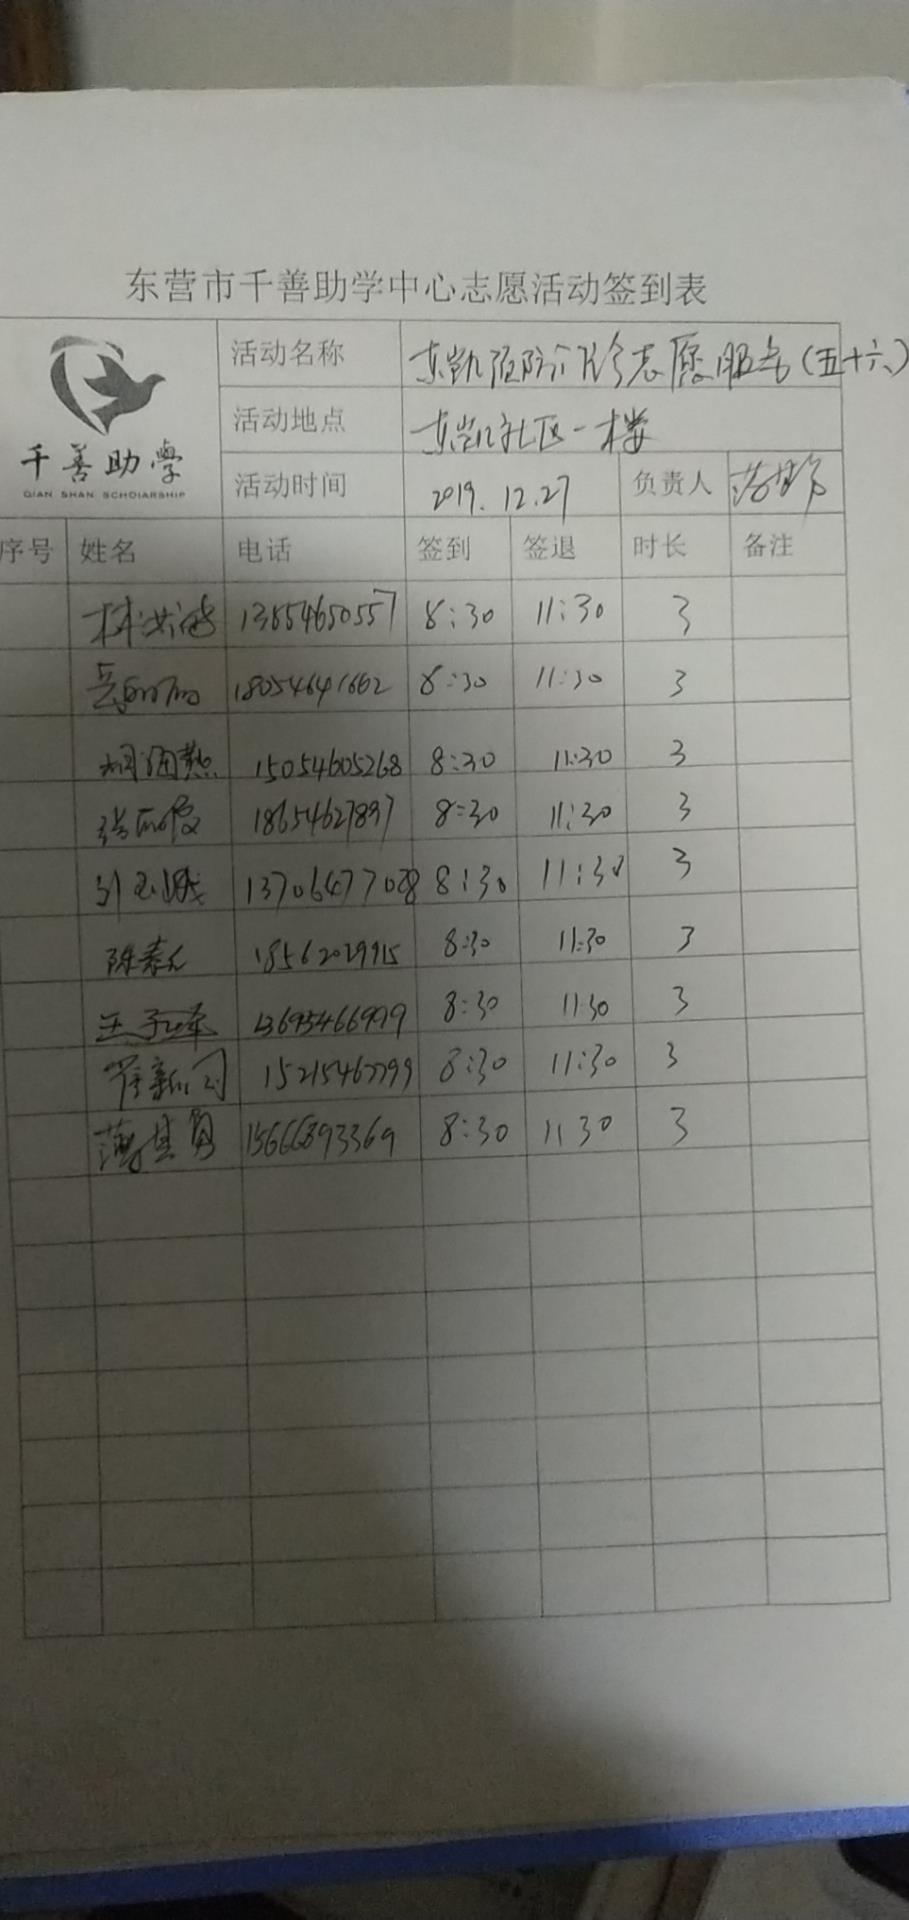 东营市千善助学中心志愿活动签到表
千善助學
QIAN SHAN SCHOLARSHIP
活动名称 东凯 志愿服务(五十六)
活动地点 东凯社区一楼
活动时间 2019.12.27 负责人
序号 姓名 电话 签到 签退 时长 备注
13854650557 8:30 11:30 3
18054641662 8:30 11:30 3
15054605268 8:30 11:30 3
18654627897 8:30 11:30 3
13706477028 8:30 11:30 3
18562029915 8:30 11:30 3
13695466999 8:30 11:30 3
崔新 15215467799 8:30 11:30 3
15666893369 8:30 11:30 3